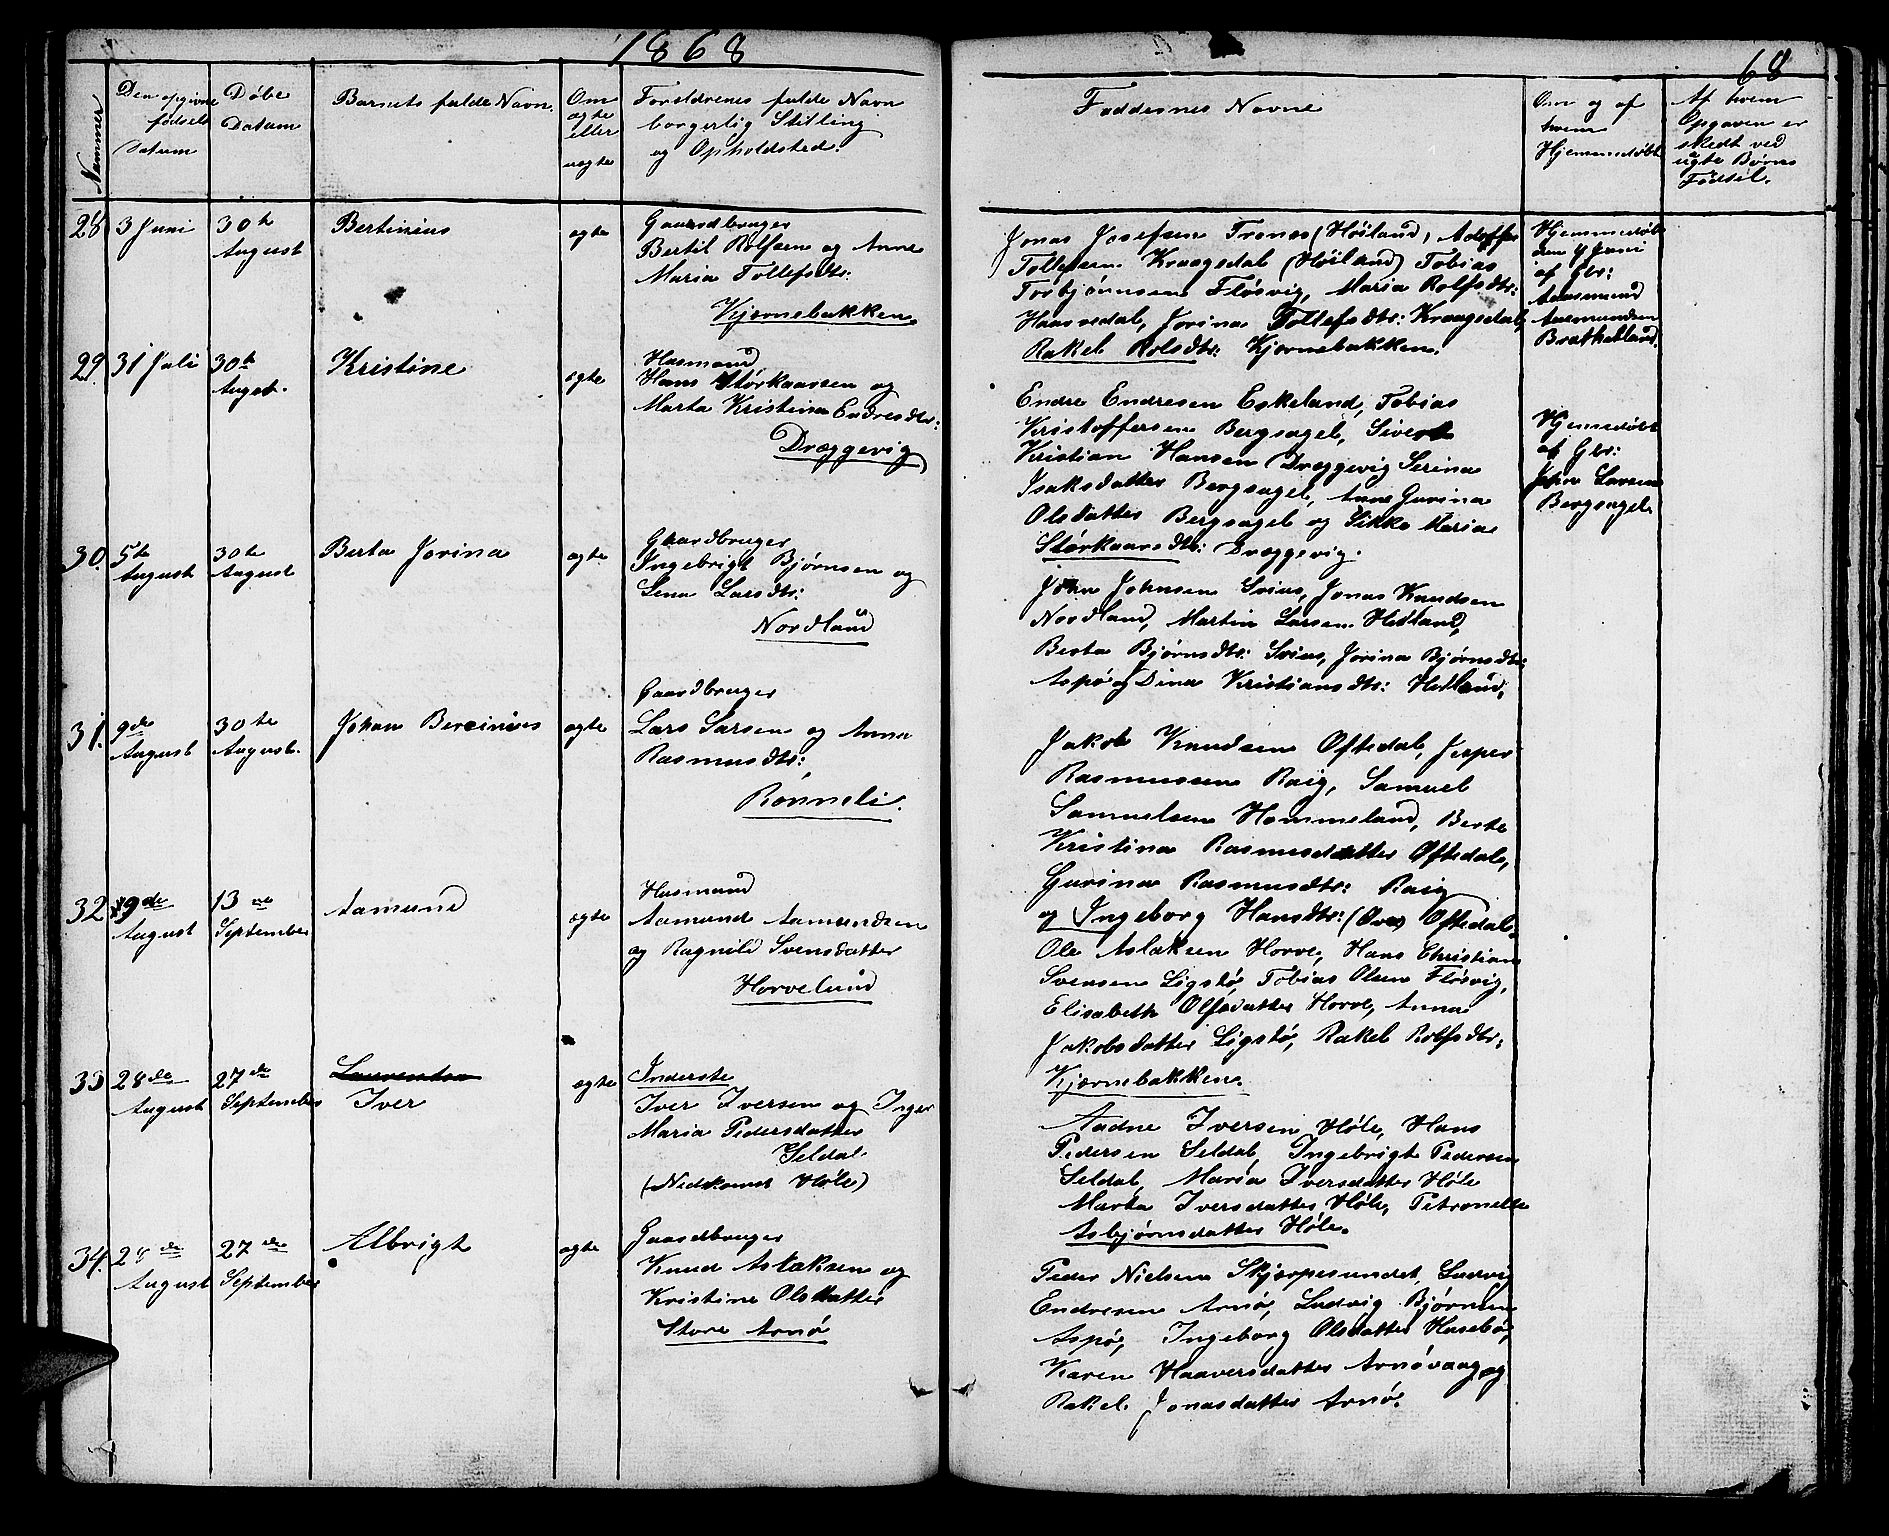 1868
68
Nummer
Den opgivne
fødsels
Datum
Døbe
Datum
Barnets fulde Navn.
Om
ægte
eller
uægte
Forældrenes fulde Navn
borgerlig Stilling
og Opholdsted.
Faddernes Navne
Om og af
hvem
Hjemmedøbt
Af hvem
Opgaven er
skedt ved
uægte Børns
Fødsel.
28
3 Juni
30te
August
Bertinius
ægte
Gaardbruger
Bertil Rolfsen og Anne
Maria Tollefsdtr:
Kjørnebakken
Jonas Josefsen Trones (Høiland)
Tollefsen Kraagedal (Høiland) Tobias
Torbjørnsen Fløsvig, Maria Rolfsdtr:
Haavedal, Jorina Tollefsdtr: Kraagedal,
Rakel Rolfsdtr: Kjørnebakken.
Hjemmedøbt
den 9 Juni
af Gbr:
Aasmund
Aasmundsen
Bratthetland.
29.
31 Juli
30te
August.
Kristine
ægte
Husmand
Hans Størkaarsen og
Marta Kristina Endresdtr:
Dræggevig
Endre Endresen Eskeland, Tobias
Kristoffersen Bergsagel, Sivert
Kristian Hansen Dræggevig Serina
Isaksdatter Bergsagel, Anne Gurina
Olsdatter Bergsagel og Sikke Maria
Størkaarsdtr: Dræggevig.
Hjemmedøbt
af Gbr:
John Larsen
Bergsagel.
30.
5te
August
30te
August
Berta Jorina
ægte
Gaardbruger
Ingebrigt Bjørnsen og
Lena Larsdtr:
Nordland
John Johnsen Svius, Jonas Knudsen
Nordland, Martin Larsen Hetland,
Berta Bjørnsdtr: Svius, Jorina Bjørnsdtr:
Aspø og Dina Kristiansdtr: Hetland.
31.
9de
August
30te
August.
Johan Bercinius
ægte
Gaardbruger
Lars Larsen og Anna
Rasmusdtr:
Ronneli.
Jakob Knudsen Oftedal, Jesper
Rasmussen Raig, Samuel
Samuelsen Hommeland, Berte
Kristina Rasmusdatter Oftedal,
Gurina Rasmusdtr: Raig
og Ingeborg Hansdtr: (Øvre) Oftedal.
32
19de
August
13de
September
Aamund
ægte
Husmand
Aamund Aamundsen
og Ragnild Svensdatter
Horvelund
Ole Aslaksen Horve, Hans Christian
Svensen Ligstø, Tobias Olsen Fløsvig,
Elisabeth Olfsdatter Horve, Anna
Jakobsdatter Ligstø, Rakel Rolfsdtr:
Kjørnebakken.
33
28de
August
27de
September
Laurentsa
Iver
ægte
Inderste
Iver Iversen og Inger
Maria Pedersdatter
Seldal.
(Nedkomst Høle)
Aadne Iversen Høle, Hans
Pedersen Seldal, Ingebrigt Pedersen
Seldal, Maria Iversdatter Høle
Marta Iversdatter Høle, Petronelle
Asbjørnsdatter Høle.
34.
28de
August
27de
September
Albrigt
ægte
Gaardbruger
Knud Aslaksen og
Kristine Olsdatter
Store Arnø
Peder Nielsen Skjørpesundet, Ludvig
Endresen Arnø, Ludvig Bjørnsen
Aspø, Ingeborg Olsdatter Husebø,
Karen Haaversdatter Arnøvaag og
Rakel Jonasdatter Arnø.